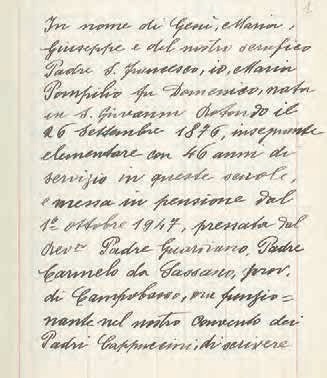 1
In nome di Gesù, Maria,
Giuseppe e del nostro serafico
Padre S. Francesco, io, Maria
Pompilio fu Domenico, nata
in S. Giovanni Rotondo il
26 Settembre 1876, insegnante
elementare con 46 anni di
servizio in queste scuole,
e messa in pensione dal
1º ottobre 1947, pressata dal
Rev.º Padre Guardiano, Padre
Carmelo da Sassano, prov.
di Campobasso, ora funzio=
nante nel nostro Convento dei
Padri Cappuccini, di scrivere